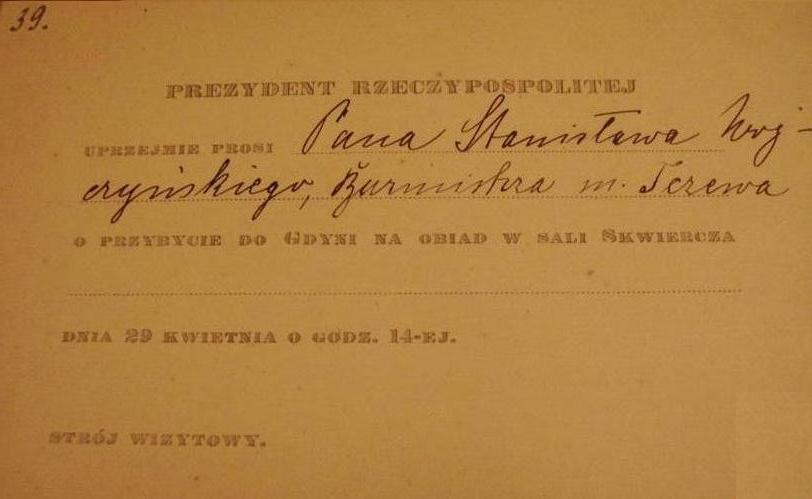 39.
PREZYDENT RZECZYPOSPOLITEJ
UPRZEJMIE PROSI Pana Stanisława Woj-
czyńskiego, Burmistrza m. Tczewa
O PRZYBYCIE DO GDYNI NA OBIAD W SALI SKWIERCZA
DNIA 29 KWIETNIA O GODZ. 14-EJ.
STRÓJ WIZYTOWY.